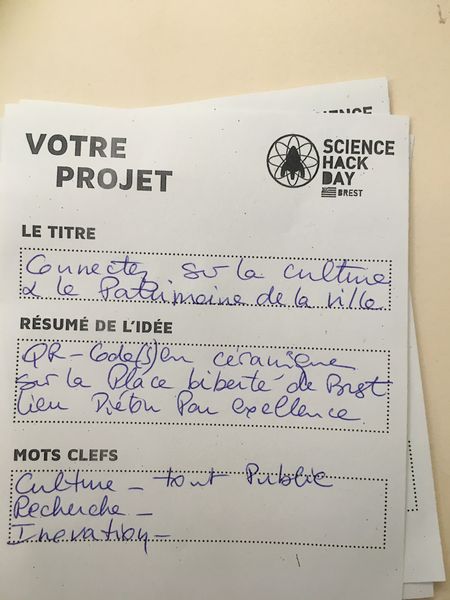 VOTRE
PROJET
SCIENCE
HACK
DAY
BREST
LE TITRE
Connectez sur la culture
& le Patrimoine de la ville
RÉSUMÉ DE L'IDÉE
QR-Code(s) en céramique
sur la Place liberté de Brest
lieu Piéton Par excellence
MOTS CLEFS
Culture - tout Public
Recherche -
Inovation -